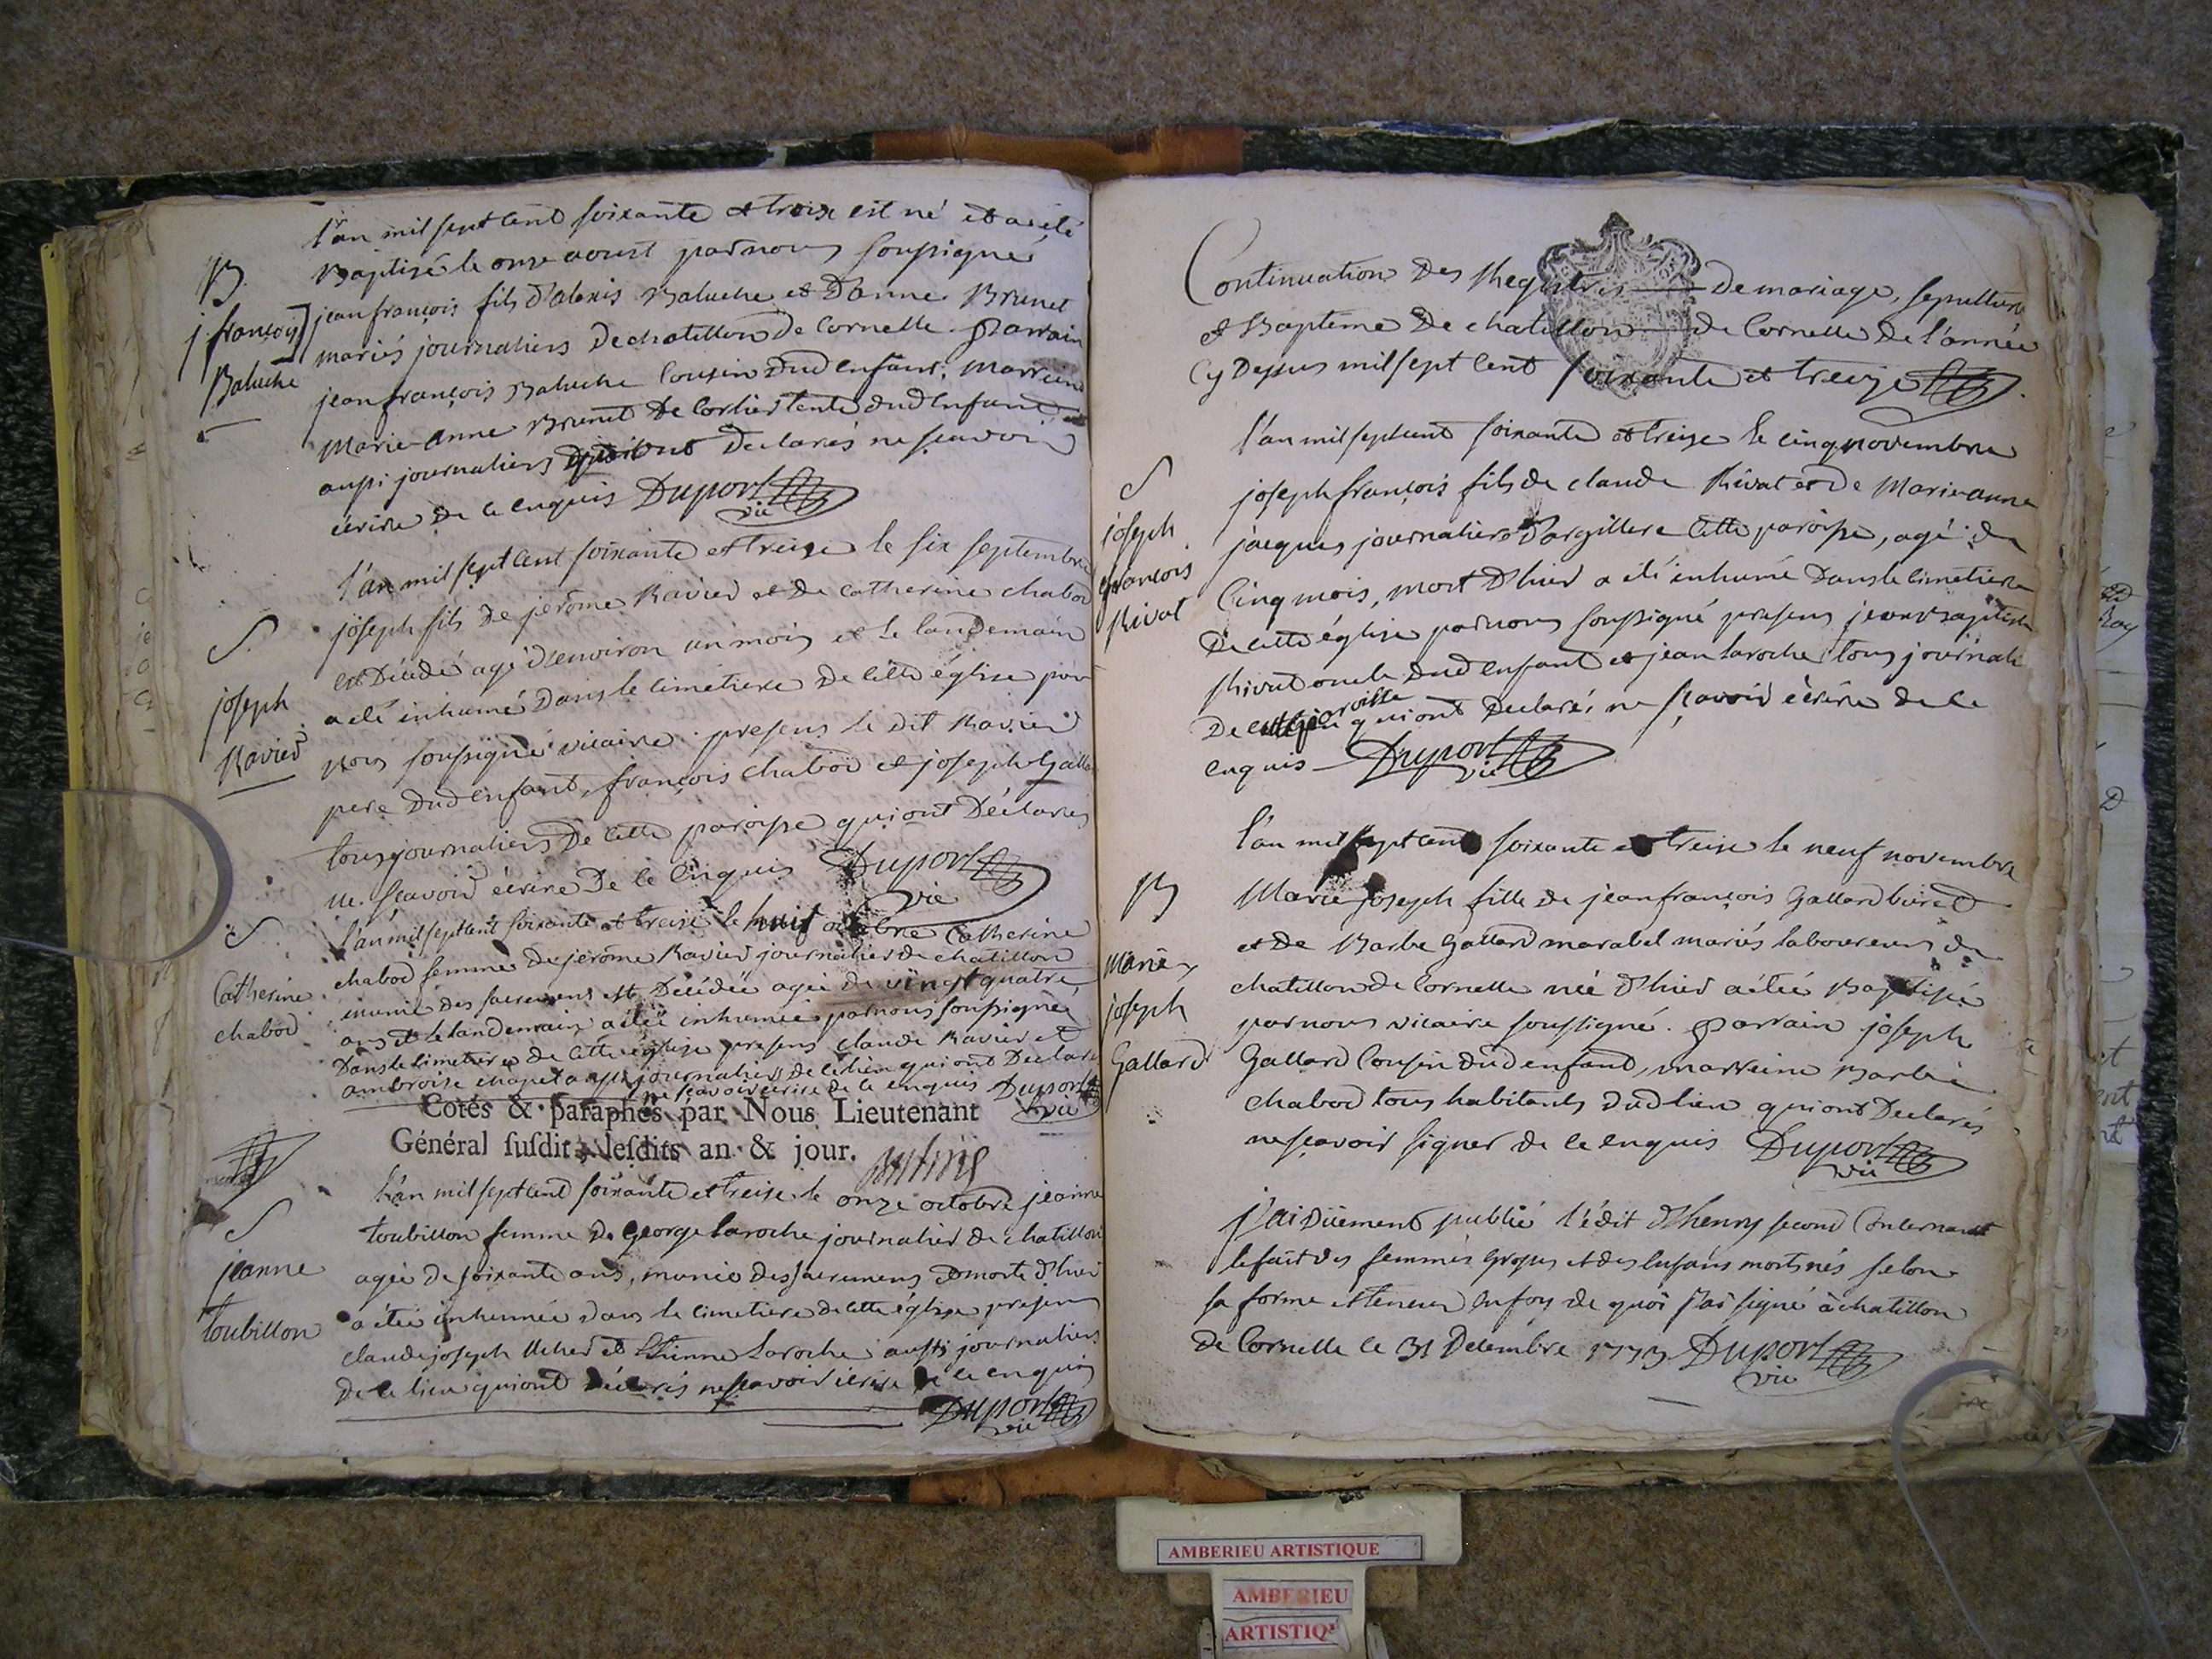 l'an mil sept cent soixante et troix est né et a été
B. Baptisé le onze aoust par nous soussigné
j françois jean françois fils d'alexis Baluche et D'anne Brunet
Baluche mariés journaliers de chatillon de Cornelle. Parrain
jean françois Baluche Cousin dud enfant, Marreine
Marie-anne Brunet de Corlier tente dud enfant
aussi journaliers qui ont Declarés ne scavoir
écrire De ce enquis Duport vic
l'an mil sept cent soixante et treize le six septembre
S. joseph fils de jerôme Ravier et de Catherine chabod
est Décédé agé d'environ un mois et le landemain
joseph a été inhumé dans le cimetiere de cette église par
Ravier nous soussigné vicaire. presens le dit Ravier
pere dud enfant, françois chabod et joseph Galla
tous journaliers de cette paroisse qui ont Déclarés
ne scavoir écrire De ce Enquis Duport vic
S l'an mil sept cent soixante et treize le huit octobre Catherine
Catherine chabod femme de jerôme Ravier journalier de chatillon
chabod munie des sacremens est Décédée agée de vingt quatre
ans et le landemain a étée inhumée par nous soussigné
Dans le cimetiere de cette église presens claude Ravier et
ambroise chapel aussi journaliers de ce lieu qui ont Declare
ne scavoir écrire de ce enquis Duport vic
Cotés & paraphés par Nous Lieutenant
Général susdit, lesdits an & jour.
l'an mil sept cent soixante et treize le onze octobre jeanne
S toubillon femme de George Laroche journalier de chatillon
jeanne agée de soixante ans, munie des sacremens et morte d'hier
toubillon a étée inhumée dans le cimetiere de cette église presens
claude joseph et Etienne Laroche aussi journaliers
de ce lieu qui ont déclarés ne scavoir écrire de ce enquis
Duport vic
Continuation des Registres de mariage, sepulture
et Bapteme de chatillon de Cornelle de l'année
Cy Dessus mil sept Cent soixante et treize
l'an mil sept cent soixante et treize le cinq novembre
S joseph françois fils de claude Rivat et de Marie anne
joseph jacques journaliers d'argillere cette paroisse, agé de
françois Cinq mois, mort d'hier a été inhumé Dans le cimetiere
Rivat De cette église par nous soussigné presens jean Baptiste
Rivat oncle dud enfant et jean Laroche tous journali
De cette paroisse qui ont Declaré, ne scavoir écrire de ce
enquis Duport vic
l'an mil sept cent soixante et treize le neuf novembre
B Marie joseph fille de jean françois Gallard
et de Barbe Gallard marabel mariés laboureurs de
Marie chatillon de Cornelle née d'hier a étée Baptisée
joseph par nous vicaire soussigné. Parrain joseph
Gallard Gallard Cousin dud enfant, marreine Barbe
chabod tous habitants dud lieu qui ont Declarés
ne scavoir signer de ce enquis Duport vic
j'ai Düement publié l'édit d'henry second Concernant
le fait des femmes grosses et des enfans morts nés selon
sa forme et teneur En foy de quoi j'ai signé à chatillon
de Cornelle le 31 Decembre 1773 Duport vic
AMBERIEU ARTISTIQUE
AMBERIEU
ARTISTIQ